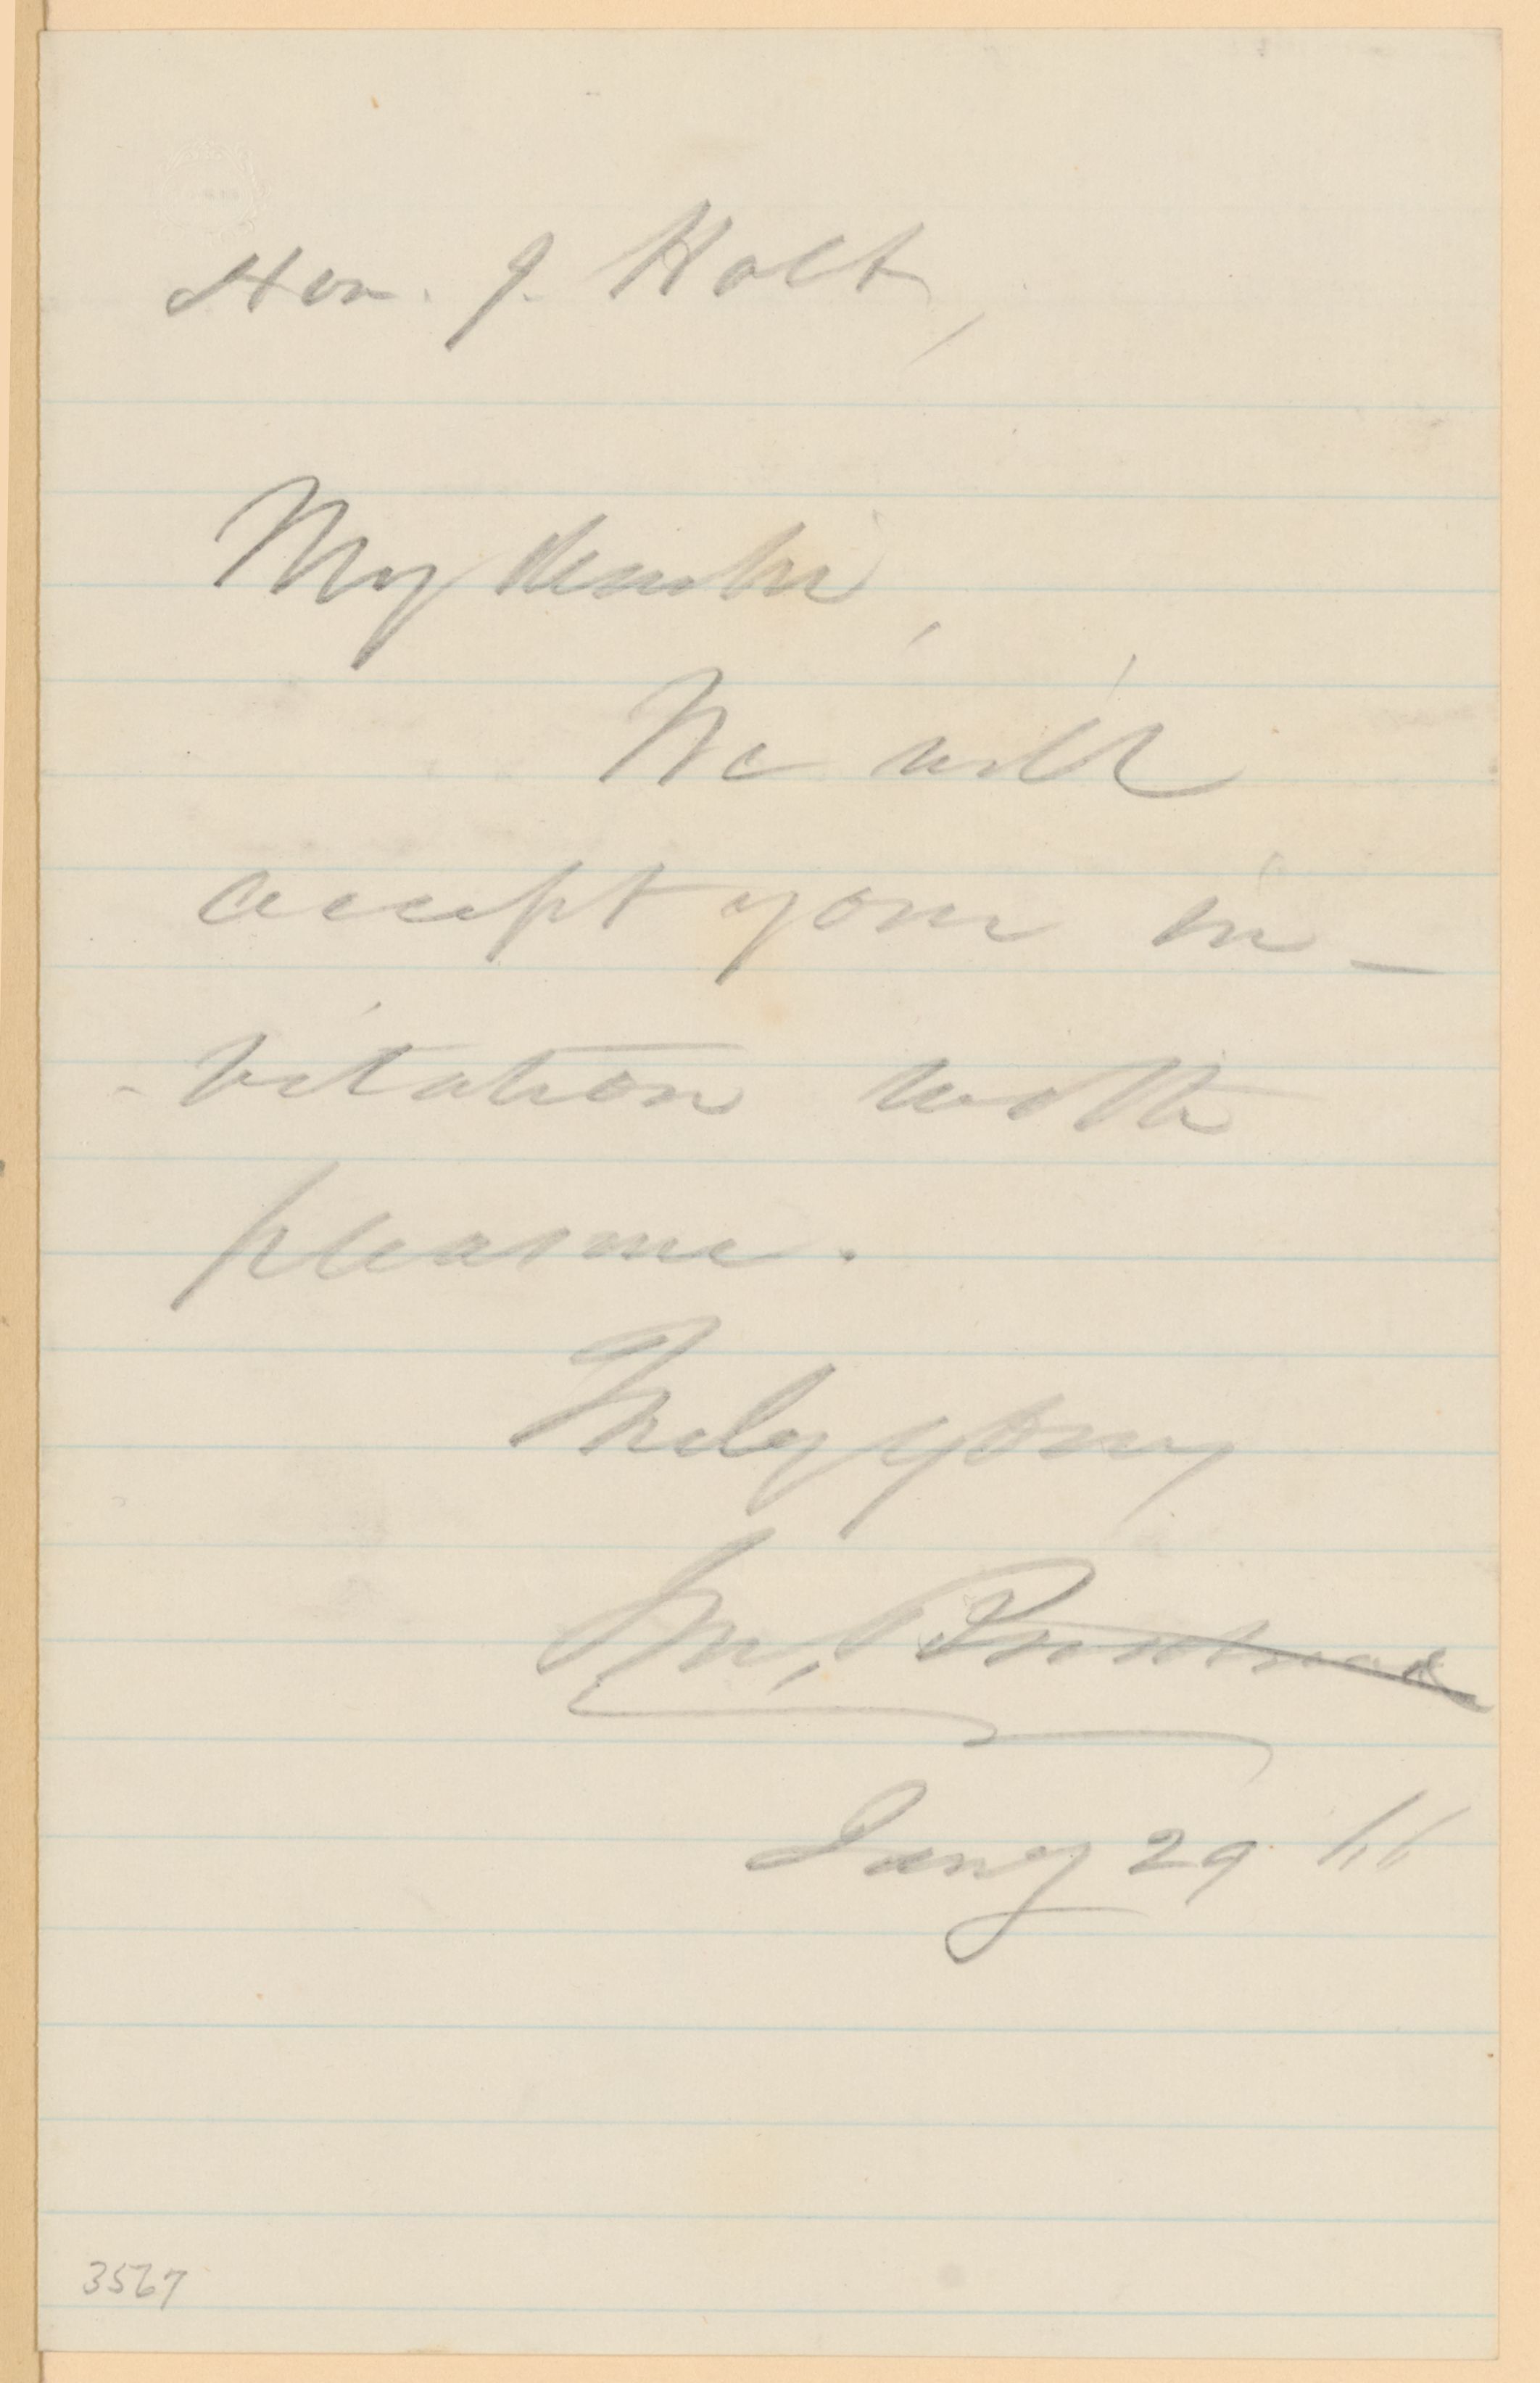 Hon. J. Holt,
My dear Sir,
We will
accept your in-
-vitation with
pleasure.
Truly yours
Jany 29 66
3567